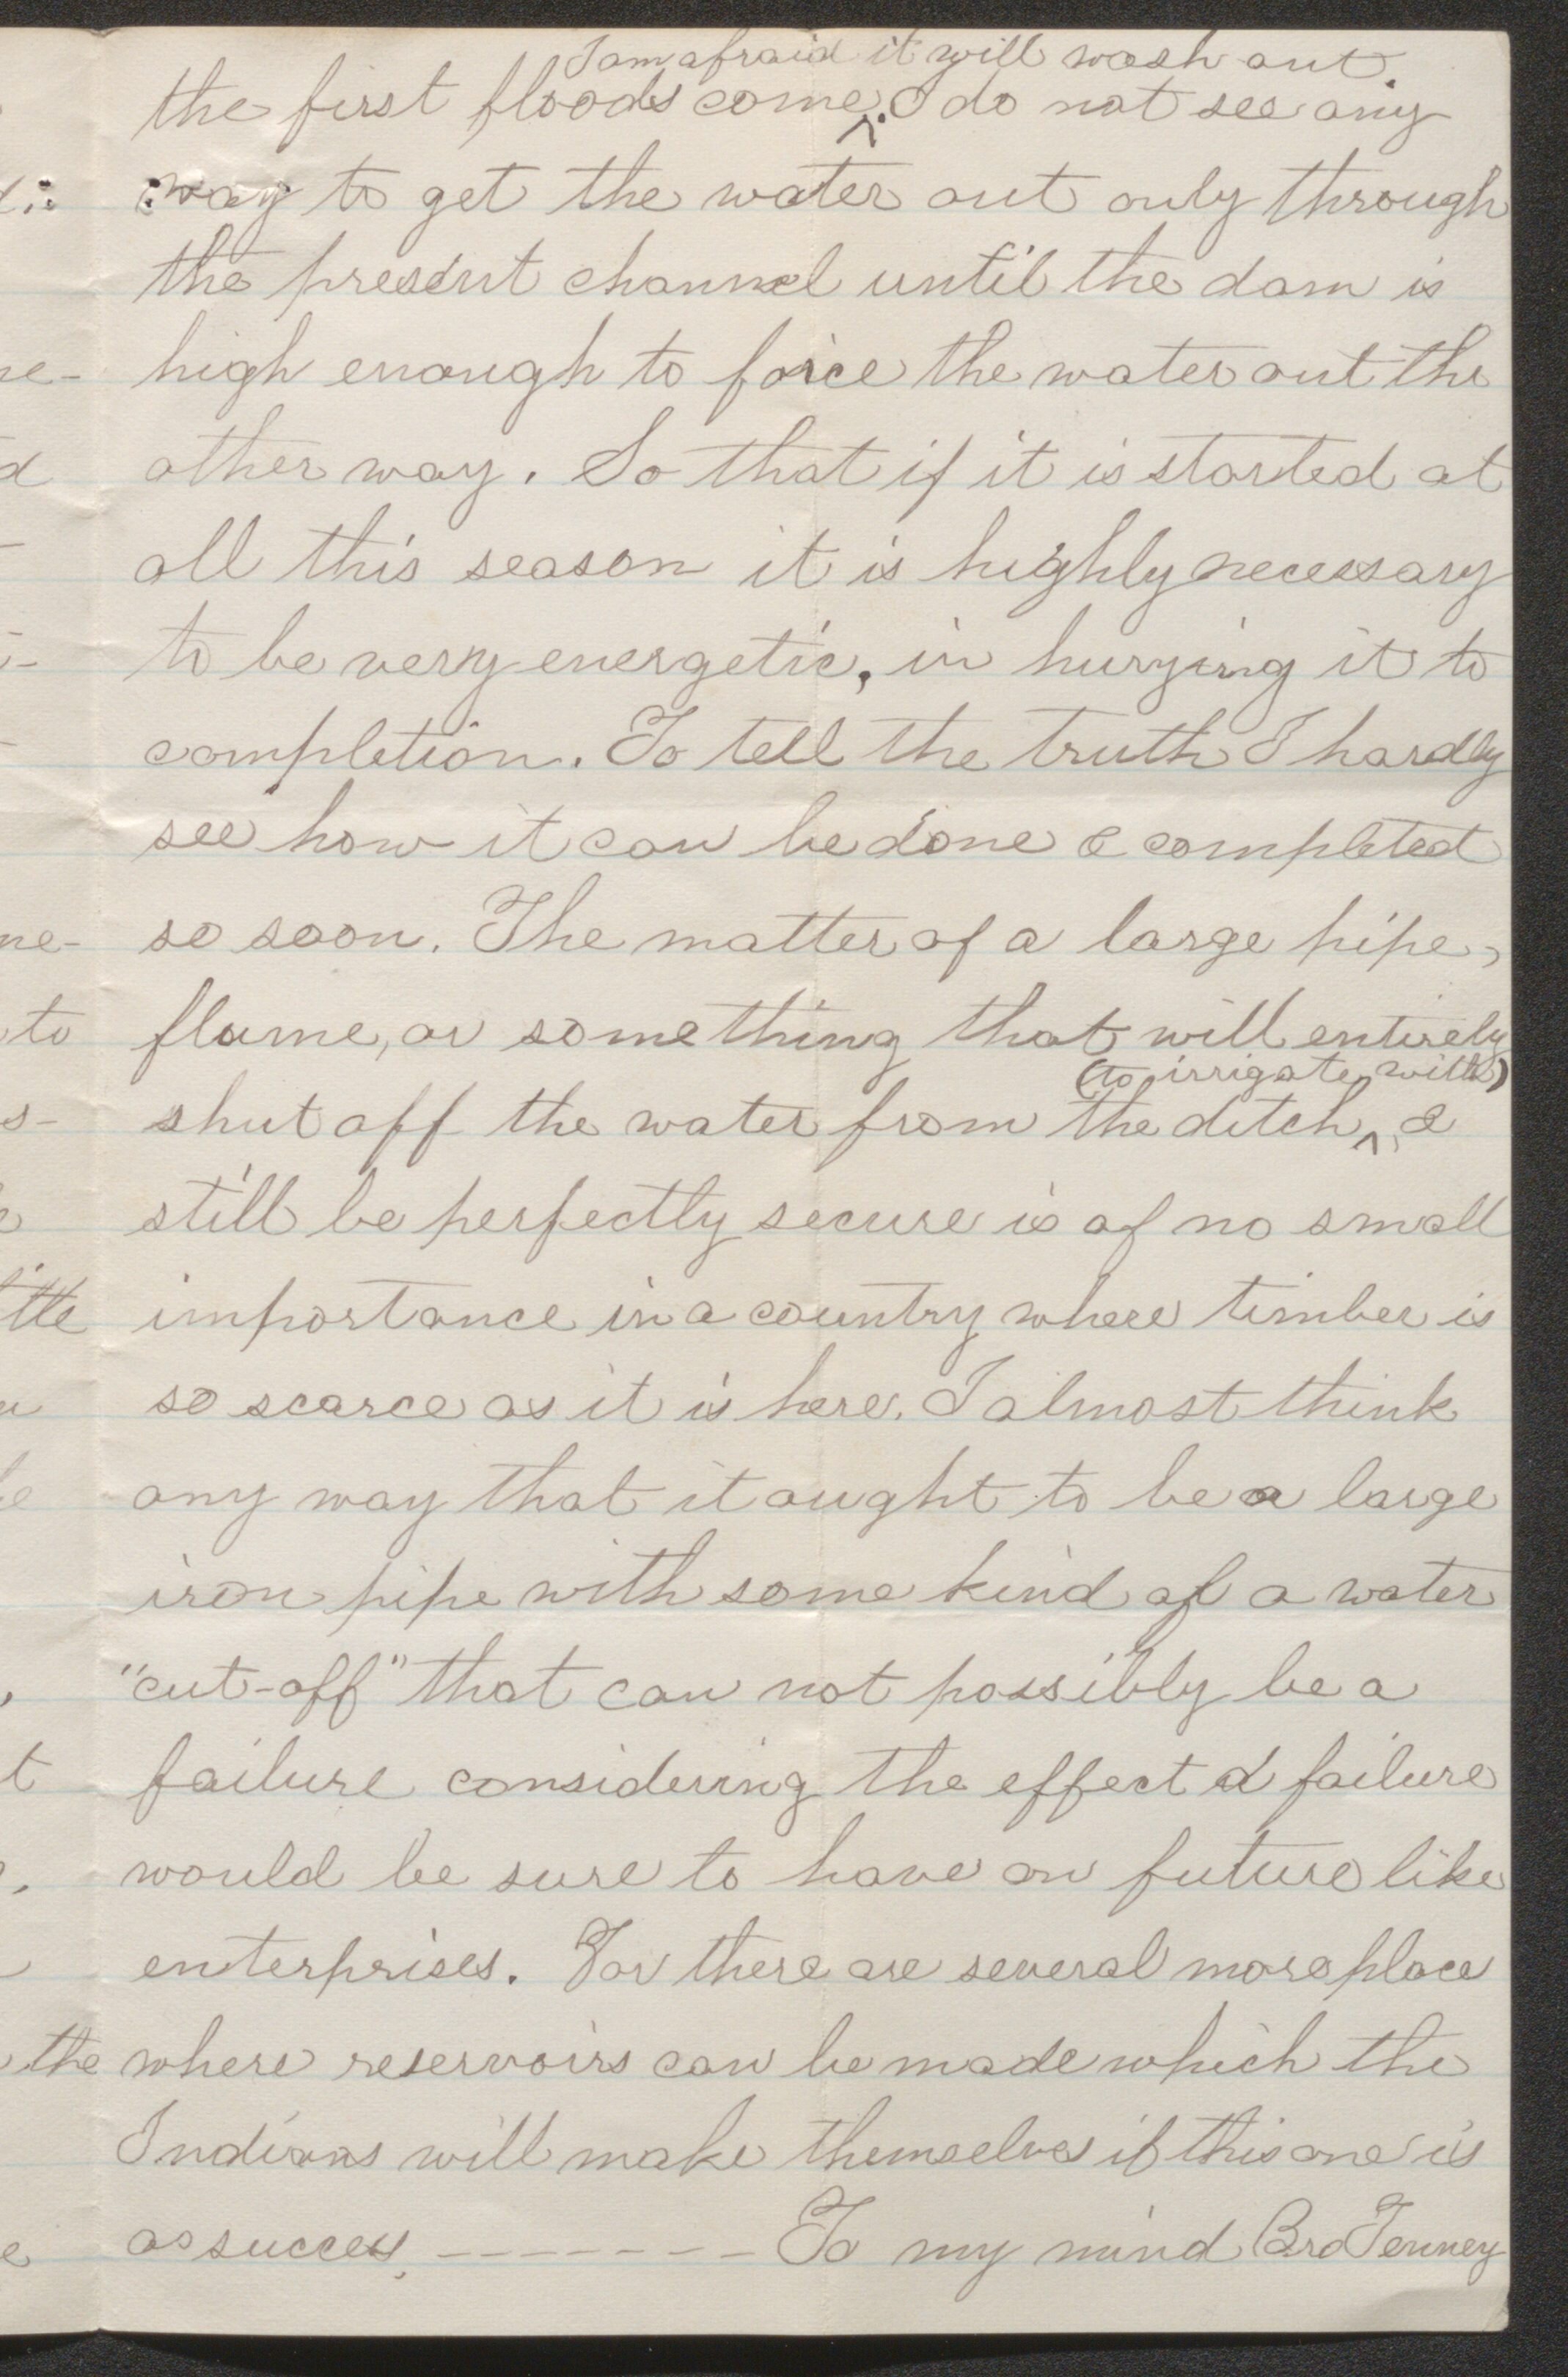 I am afraid it will wash out.
the first floods come ^. I do not see any
way to get the water out only through
the present channel until the dam is
high enough to force the water out the
other way. So that if it is started at
all this season it is highly necessary
to be very energetic, in hurying it to
completion. To tell the truth I hardly
see how it can be done & completed
so soon. The matter of a large pipe,
flume, or something that will entirely
(to irrigate with)
shut off the water from the ditch ^, &
still be perfectly secure is of no small
importance in a country where timber is
so scarce as it is here. I almost think
any way that it ought to be a large
iron pipe with some kind of a water
"cut-off" that can not possibly be a
failure considering the effect a failure
would be sure to have on future like
enterprises. For there are several more place
the where reservoirs can be made which the
Indians will make themselves if this one is
as success. ------- To my mind Bro Tenney